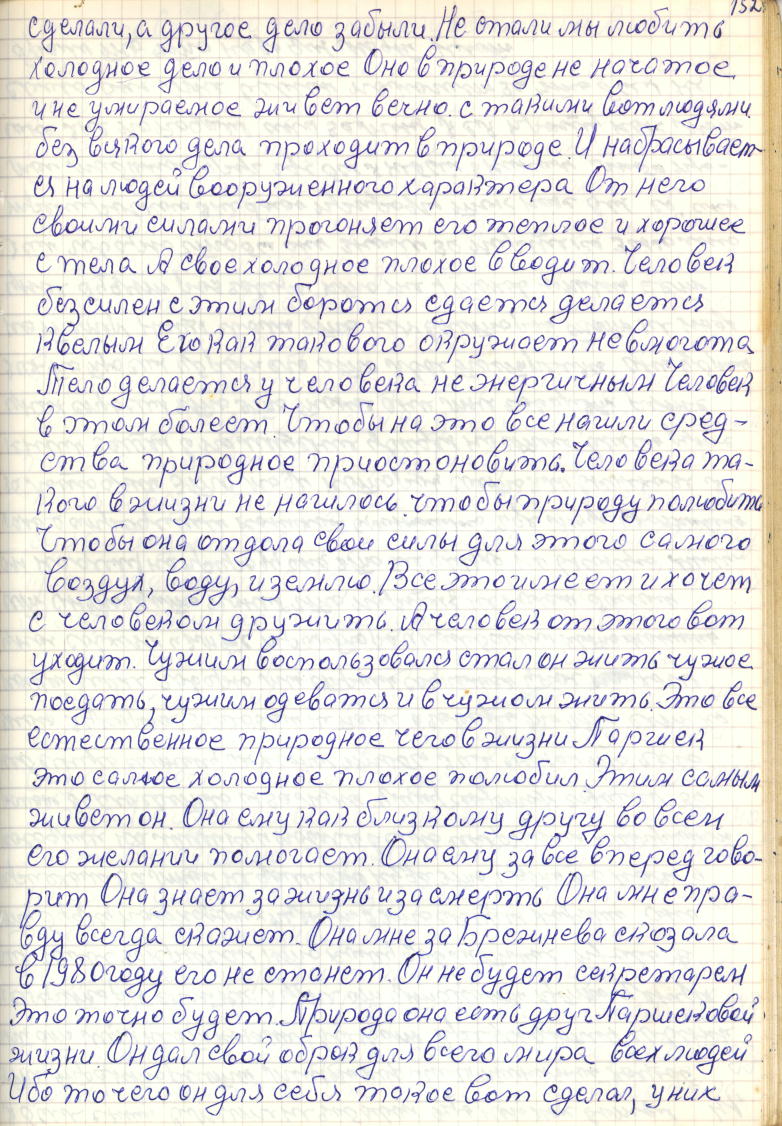 152.
сделали, а другое дело забыли. Не стали мы любить
холодное дело и плохое Оно в природе не начатое
и не умираемое живет вечно. с такими вот людями
без всякого дела проходит в природе. И набрасывает-
ся на людей вооруженного характера От него
своими силами прогоняет его теплое и хорошее
с тела А свое холодное плохое вводит. Человек
безсилен с этим боротся сдается делается
квелым Его как такового окружает невмогота
Тело делается у человека не энергичным Человек
в этом болеет. Чтобы на это все нашли сред-
ства природное приостоновить. Человека та-
кого в жизни не нашлось чтобы природу полюбить
Чтобы она отдола свои силы для этого самого
воздух, воду, и землю. Все это имеет и хочет
с человеком дружить. А человек от этого вот
уходит. Чужим воспользовался стал он жить чужое
поедать, чужим одеватся и в чужом жить. Это все
естественное природное чего в жизни Паршек
это самое холодное плохое полюбил. Этим самым
живет он. Она ему как близкому другу во всем
его желании помогает. Она ему за все вперед гово-
рит Она знает за жизнь и за смерть Она мне пра-
вду всегда скажет. Она мне за Брежнева скозала
в 1980 году его не станет. Он не будет секретарем
Это точно будет. Природа она есть друг Паршековой
жизни. Он дал свой оброк для всего мира всех людей
Ибо то чего он для себя токое вот сделал, у них